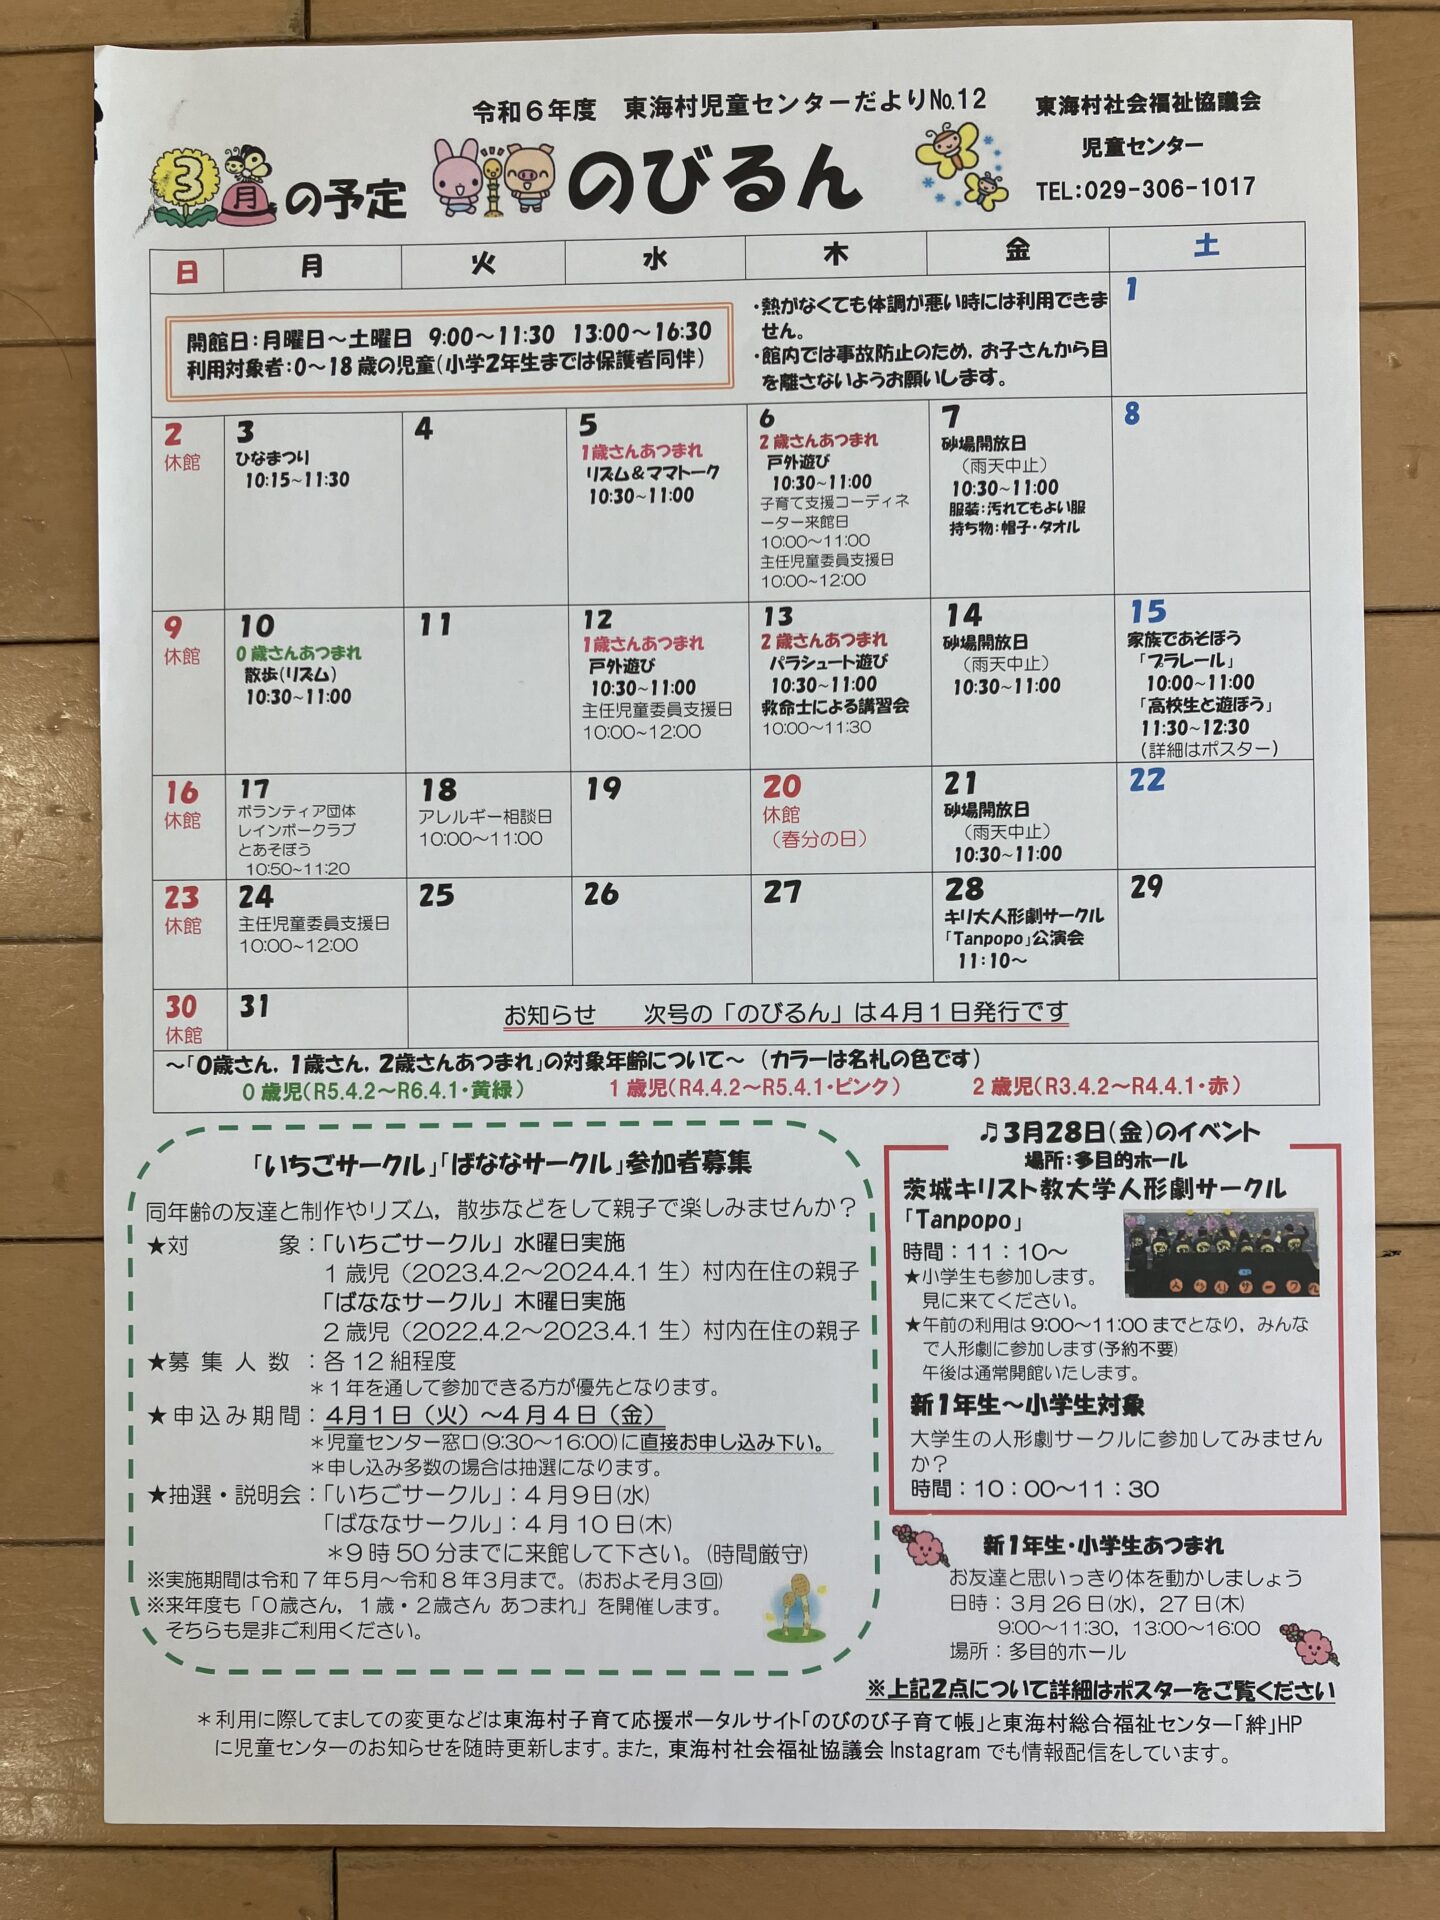 令和6年度　東海村児童センターだよりNo.12
東海村社会福祉協議会
児童センター
TEL:029-306-1017
3月の予定
のびるん
日 月 火 水 木 金 土
開館日:月曜日～土曜日　9:00～11:30　13:00～16:30
利用対象者:0～18歳の児童(小学2年生までは保護者同伴)
・熱がなくても体調が悪い時には利用できま
せん。
・館内では事故防止のため，お子さんから目
を離さないようお願いします。
1
2
休館
3
ひなまつり
10:15~11:30
4
5
1歳さんあつまれ
リズム&ママトーク
10:30~11:00
6
2歳さんあつまれ
戸外遊び
10:30~11:00
子育て支援コーディネ
ーター来館日
10:00～11:00
主任児童委員支援日
10:00~12:00
7
砂場開放日
（雨天中止）
10:30~11:00
服装:汚れてもよい服
持ち物:帽子・タオル
8
9
休館
10
0歳さんあつまれ
散歩(リズム)
10:30~11:00
11
12
1歳さんあつまれ
戸外遊び
10:30~11:00
主任児童委員支援日
10:00~12:00
13
2歳さんあつまれ
パラシュート遊び
10:30~11:00
救命士による講習会
10:00～11:30
14
砂場開放日
（雨天中止）
10:30~11:00
15
家族であそぼう
「プラレール」
10:00~11:00
「高校生と遊ぼう」
11:30~12:30
（詳細はポスター）
16
休館
17
ボランティア団体
レインボークラブ
とあそぼう
10:50~11:20
18
アレルギー相談日
10:00～11:00
19
20
休館
（春分の日）
21
砂場開放日
（雨天中止）
10:30~11:00
22
23
休館
24
主任児童委員支援日
10:00~12:00
25
26
27
28
キリ大人形劇サークル
「Tanpopo」公演会
11:10～
29
30
休館
31
お知らせ　　次号の「のびるん」は4月1日発行です
～「0歳さん，1歳さん，2歳さんあつまれ」の対象年齢について～（カラーは名札の色です）
0歳児(R5.4.2～R6.4.1・黄緑)　1歳児(R4.4.2～R5.4.1・ピンク)　2歳児(R3.4.2～R4.4.1・赤)
「いちごサークル」「ばななサークル」参加者募集
同年齢の友達と制作やリズム，散歩などをして親子で楽しみませんか？
★対　　　象：「いちごサークル」水曜日実施
1歳児（2023.4.2～2024.4.1生）村内在住の親子
「ばななサークル」木曜日実施
2歳児（2022.4.2～2023.4.1生）村内在住の親子
★募集人数：各12組程度
＊1年を通して参加できる方が優先となります。
★申込み期間：4月1日（火）～4月4日（金）
＊児童センター窓口(9:30～16:00)に直接お申し込み下い。
＊申し込み多数の場合は抽選になります。
★抽選・説明会：「いちごサークル」：4月9日(水)
「ばななサークル」：4月10日(木)
＊9時50分までに来館して下さい。(時間厳守)
※実施期間は令和7年5月～令和8年3月まで。(おおよそ月3回)
※来年度も「0歳さん，1歳・2歳さん あつまれ」を開催します。
そちらも是非ご利用ください。
♬3月28日(金)のイベント
場所:多目的ホール
茨城キリスト教大学人形劇サークル
「Tanpopo」
時間：11：10～
★小学生も参加します。
見に来てください。
★午前の利用は9:00～11:00までとなり，みんな
で人形劇に参加します(予約不要)
午後は通常開館いたします。
新1年生～小学生対象
大学生の人形劇サークルに参加してみません
か？
時間：10：00～11：30
新1年生・小学生あつまれ
お友達と思いっきり体を動かしましょう
日時：3月26日(水)，27日(木)
9:00～11:30，13:00～16:00
場所：多目的ホール
※上記2点について詳細はポスターをご覧ください
＊利用に際してましての変更などは東海村子育て応援ポータルサイト「のびのび子育て帳」と東海村総合福祉センター「絆」HP
に児童センターのお知らせを随時更新します。また，東海村社会福祉協議会Instagramでも情報配信をしています。